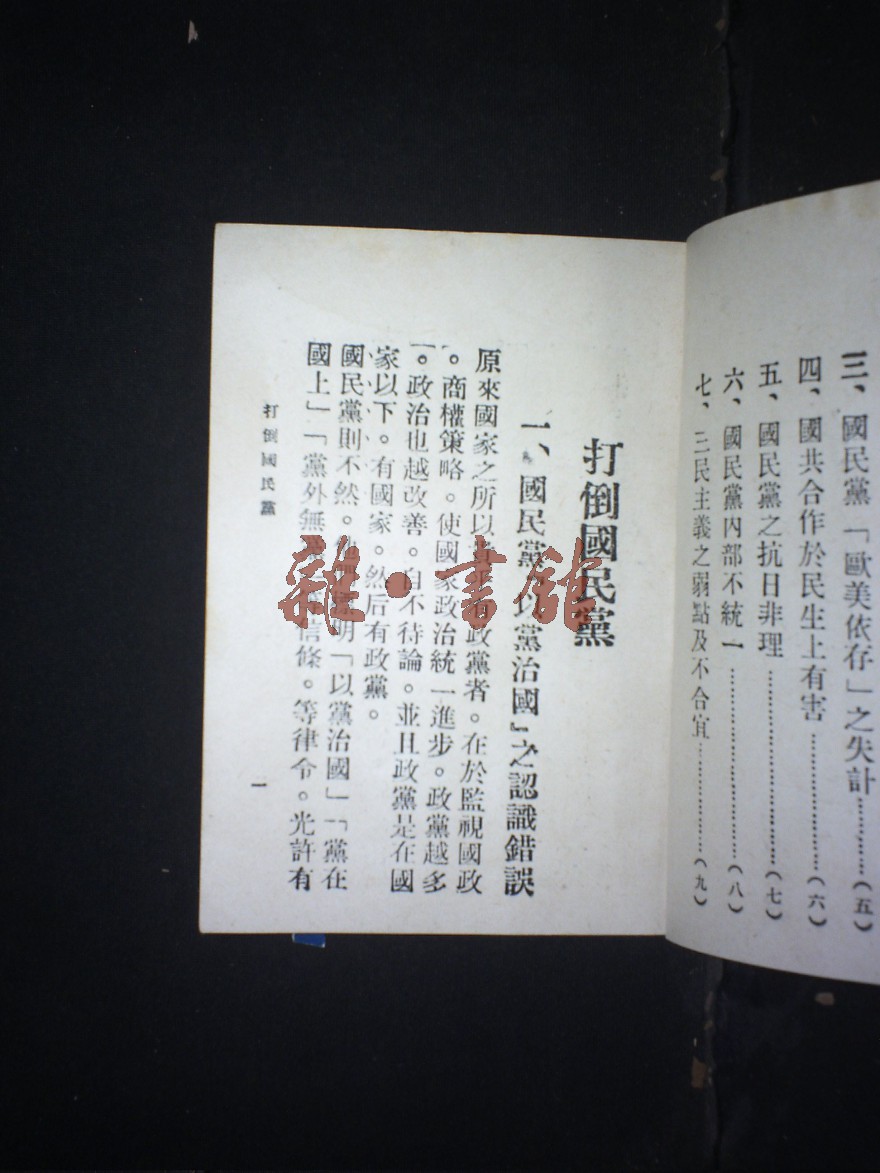 三、國民黨「歐美依存」之失計…………（五）
四、國共合作於民生上有害…………（六）
五、國民黨之抗日非理…………（七）
六、國民黨內部不統一…………（八）
七、三民主義之弱點及不合宜…………（九）
打倒國民黨
一、國民黨『以黨治國』之認識錯誤
原來國家之所以 政黨者。在於監視國政
。商權策略。使國家政治統一進步。政黨越多
。政治也越改善。自不待論。並且政黨是在國
家以下。有國家。然后有政黨。
國民黨則不然。 明「以黨治國」「黨在
國上」「黨外無 信條。等律令。光許有
打倒國民黨
一
雜·書館